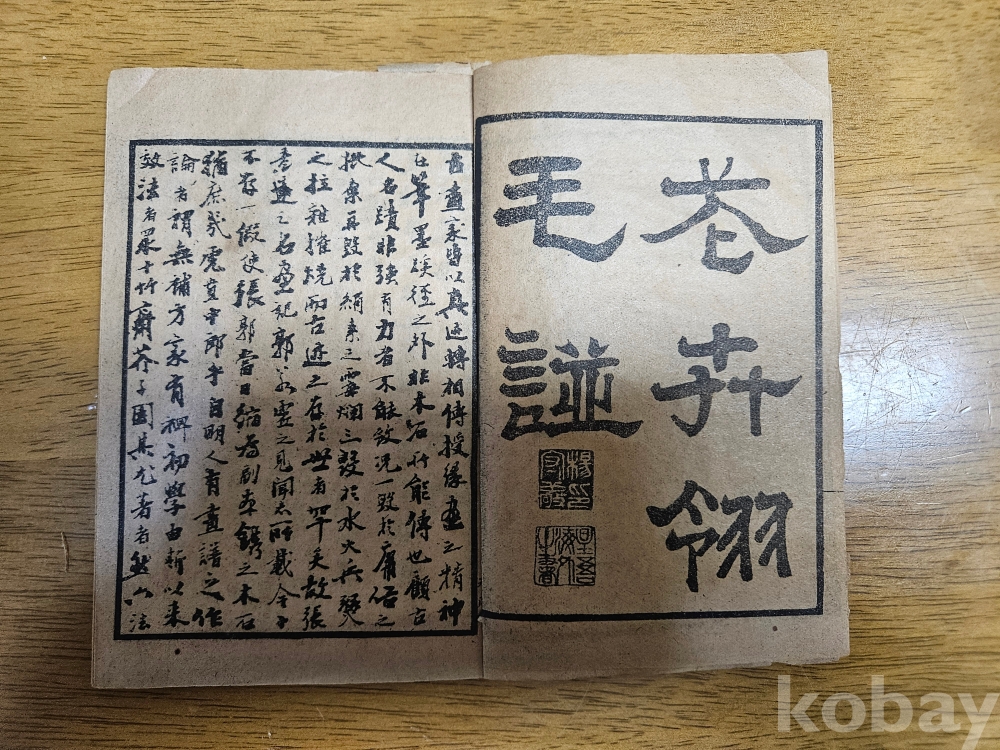 花卉翎
毛譜
楊印守敬
古畫家皆以真迹轉相傳授緣畫之精神
在筆墨蹊徑之外非木石所能傳也顧古
人名蹟非強有力者不能致況一毀於庸俗之
棄再毀於絹素之霉爛三毀於水火兵燹
之拉雜摧燒而古迹之存於世者罕矣故張
彥遠之名畫記郭若虛之見聞志所載今
不存一假使張郭當日縮為副本鐫之木石
猶庶幾虎賁中郎乎自明人有畫譜之作
論者謂無補方家有裨初學由斯以來
效法者眾十竹齋芥子園其尤著者然六法
kobay